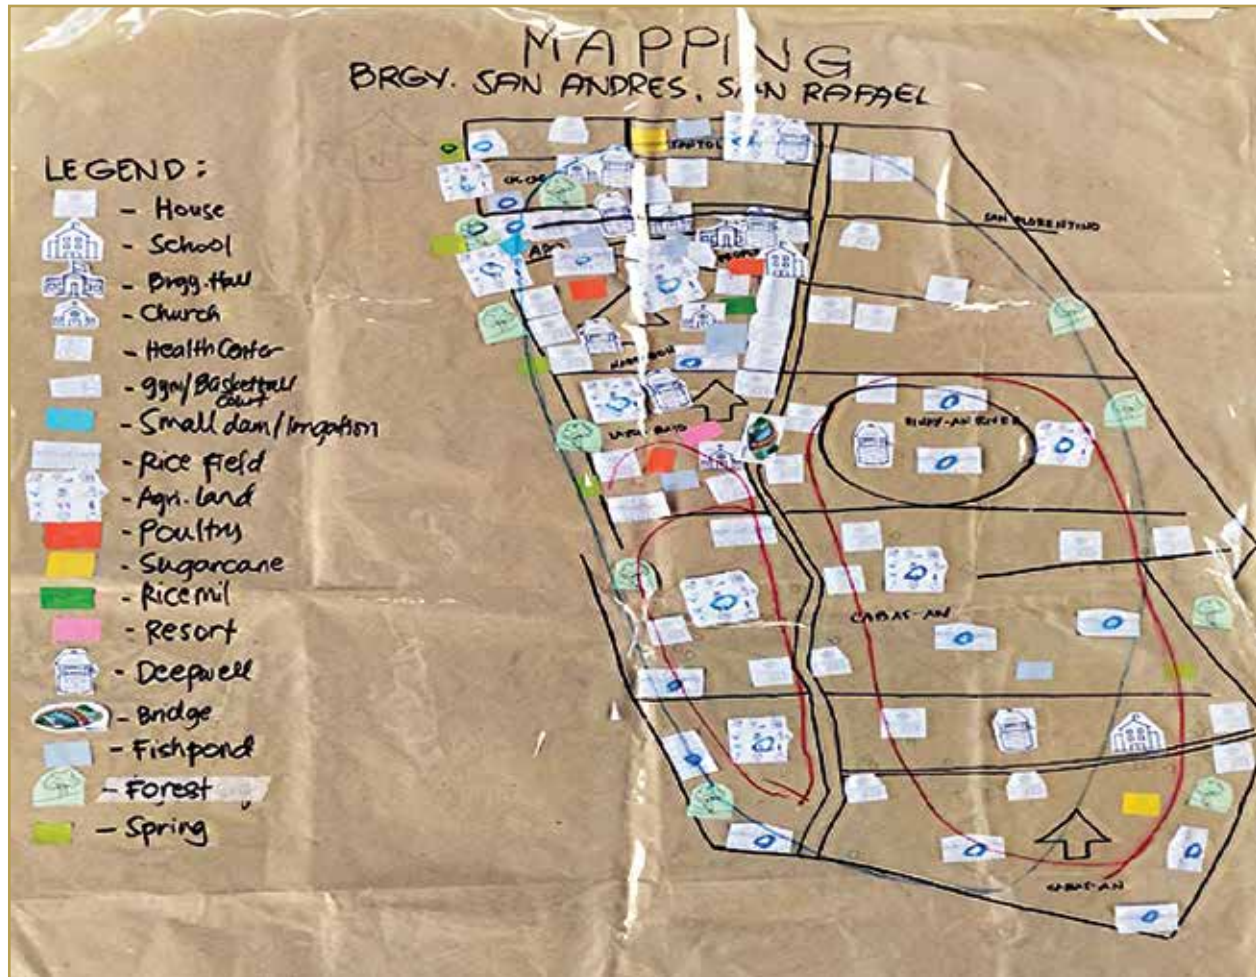 MAPPING
BRGY. SAN ANDRES, SAN RAFAEL
LEGEND:
- House
- School
- Brgy. Hall
- Church
- Health Center
- Gym/Basketball
court
- Small dam/Irrigation
- Rice Field
- Agri. land
- Poultry
- Sugarcane
- Ricemil
- Resort
- Deepwell
- Bridge
- Fishpond
- Forest
- Spring
SAN FLORENTINO
CABAS-AN
CABAS-AN